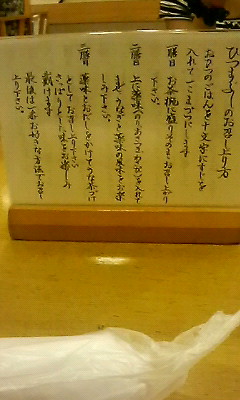 ひつまぶしのお召し上り方
おひつのごはんを十文字にすじを
入れて一こまづつにします
一膳目 お茶椀に盛りそのままお召し上がり
下さい。
二膳目 上に薬味(のりあさつきわさび)を入れて
まぜうなぎと薬味の風味をお楽
しみ下さい。
三膳目 薬味とおだしをかけてうな茶づけ
としてお召し上り下さい
さっぱりとした味をお楽しみ
戴けます
最後は一番お好きな方法でお召し
上り下さい。